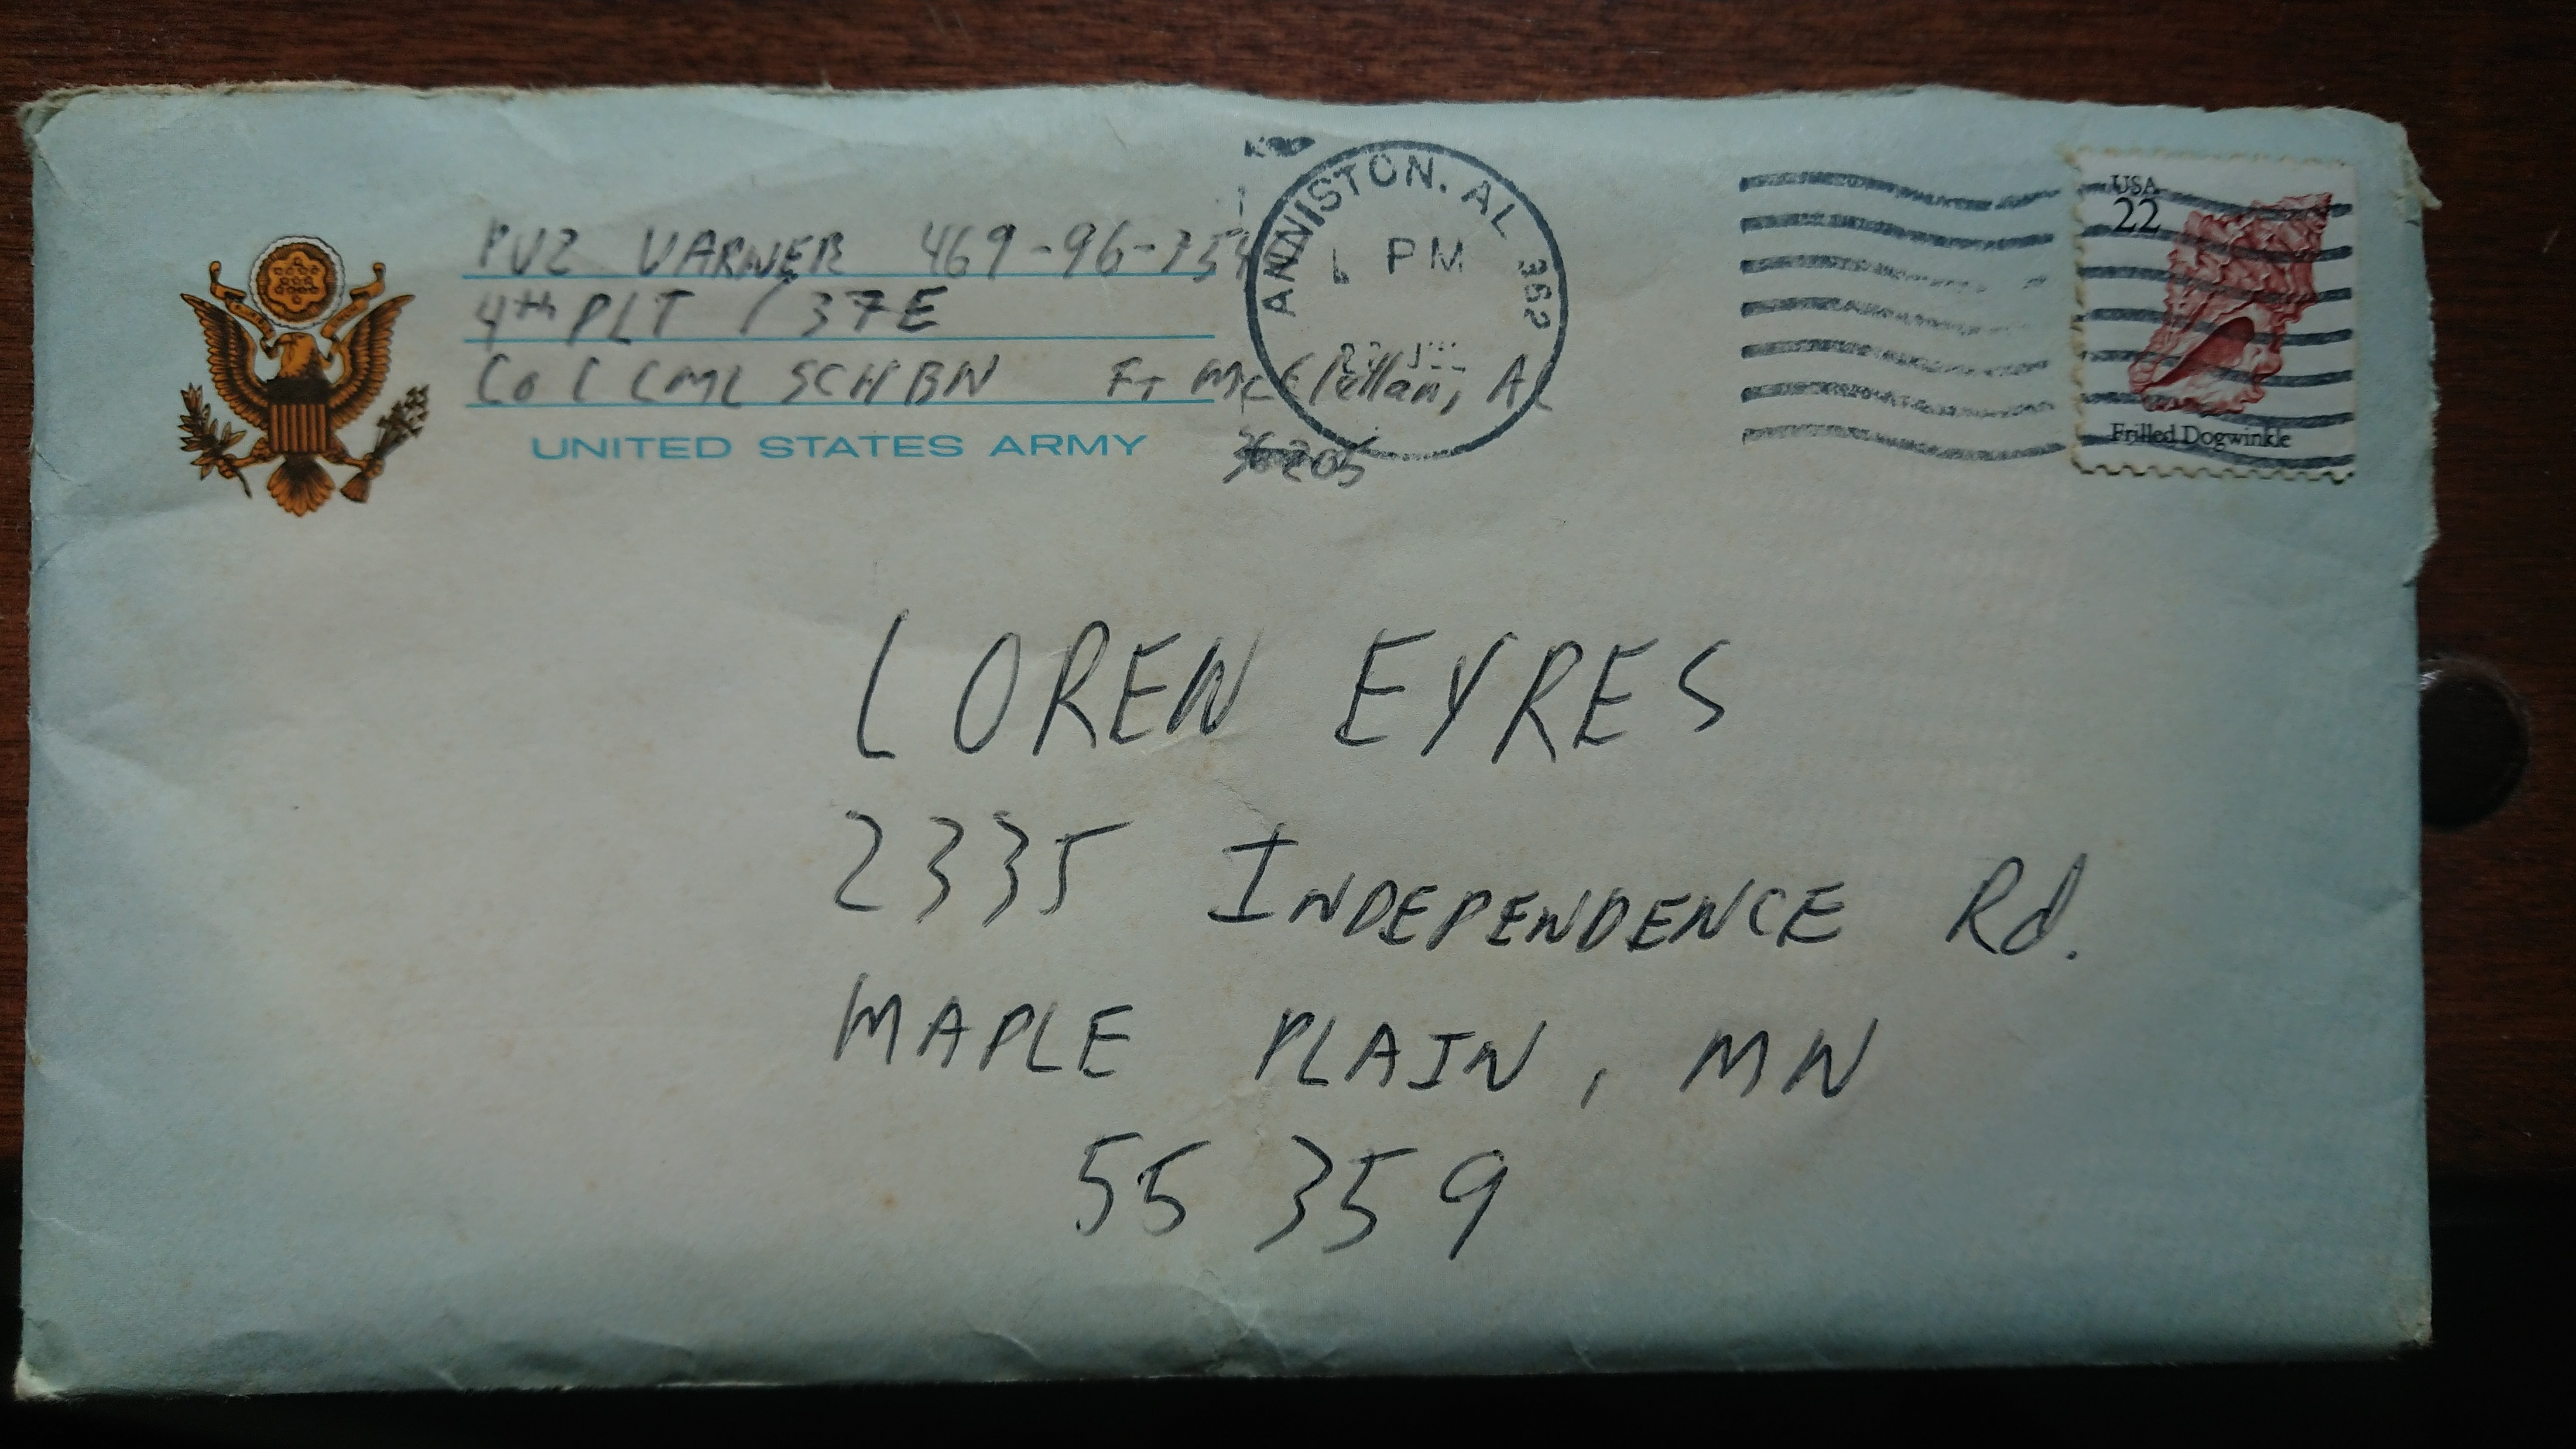 PV2 VARNER
4th PLT / 37E
Co C CML SCH BN Ft McClellan, AL
36205
UNITED STATES ARMY
ANNISTON, AL 362
PM
USA
22
Frilled Dogwinkle
LOREN EYRES
2335 INDEPENDENCE Rd.
MAPLE PLAIN, MN
55359